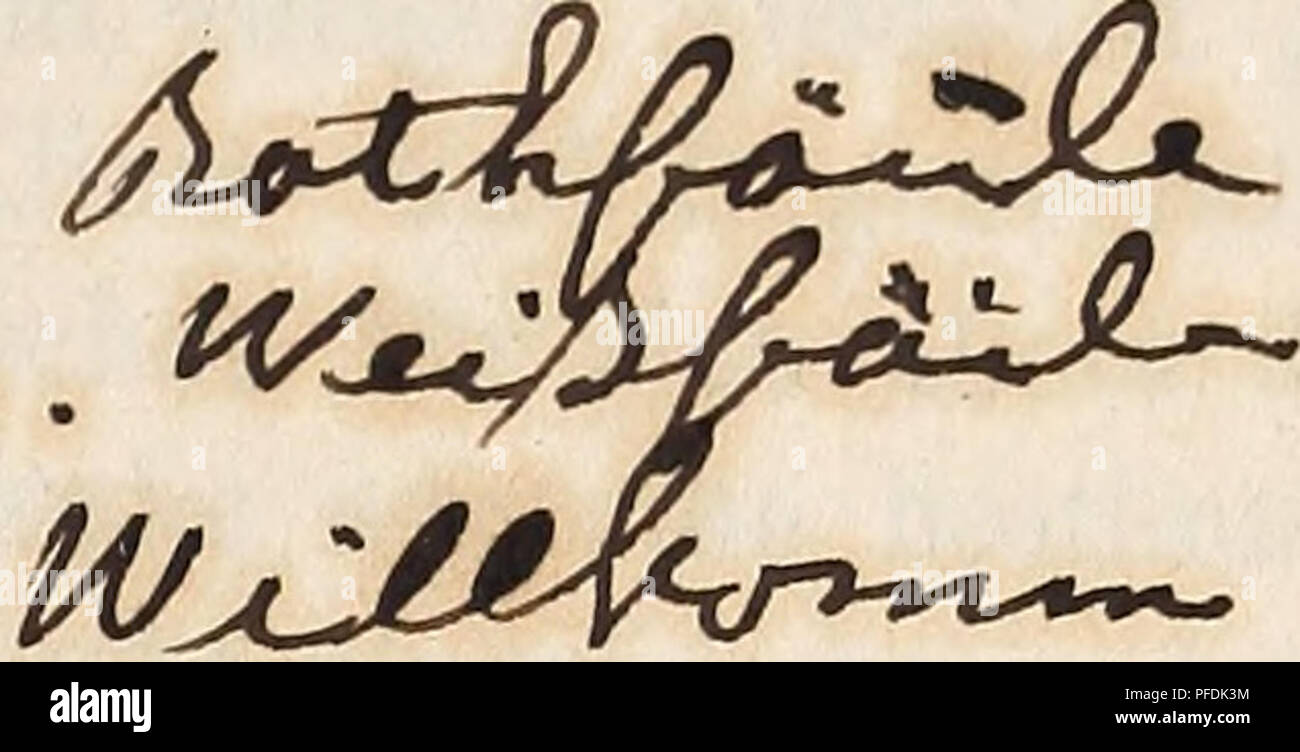 Rothfäule
Weißfäule
Willkomm
alamy
Image ID: PFDK3M
www.alamy.com